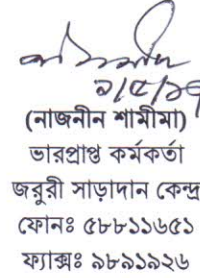 ৯/৫/১৬
(নাজনীন শামীমা)
ভারপ্রাপ্ত কর্মকর্তা
জরুরী সাড়াদান কেন্দ্র
ফোনঃ ৫৮৮১১৬৫১
ফ্যাক্সঃ ৯৮৯১৯২৬